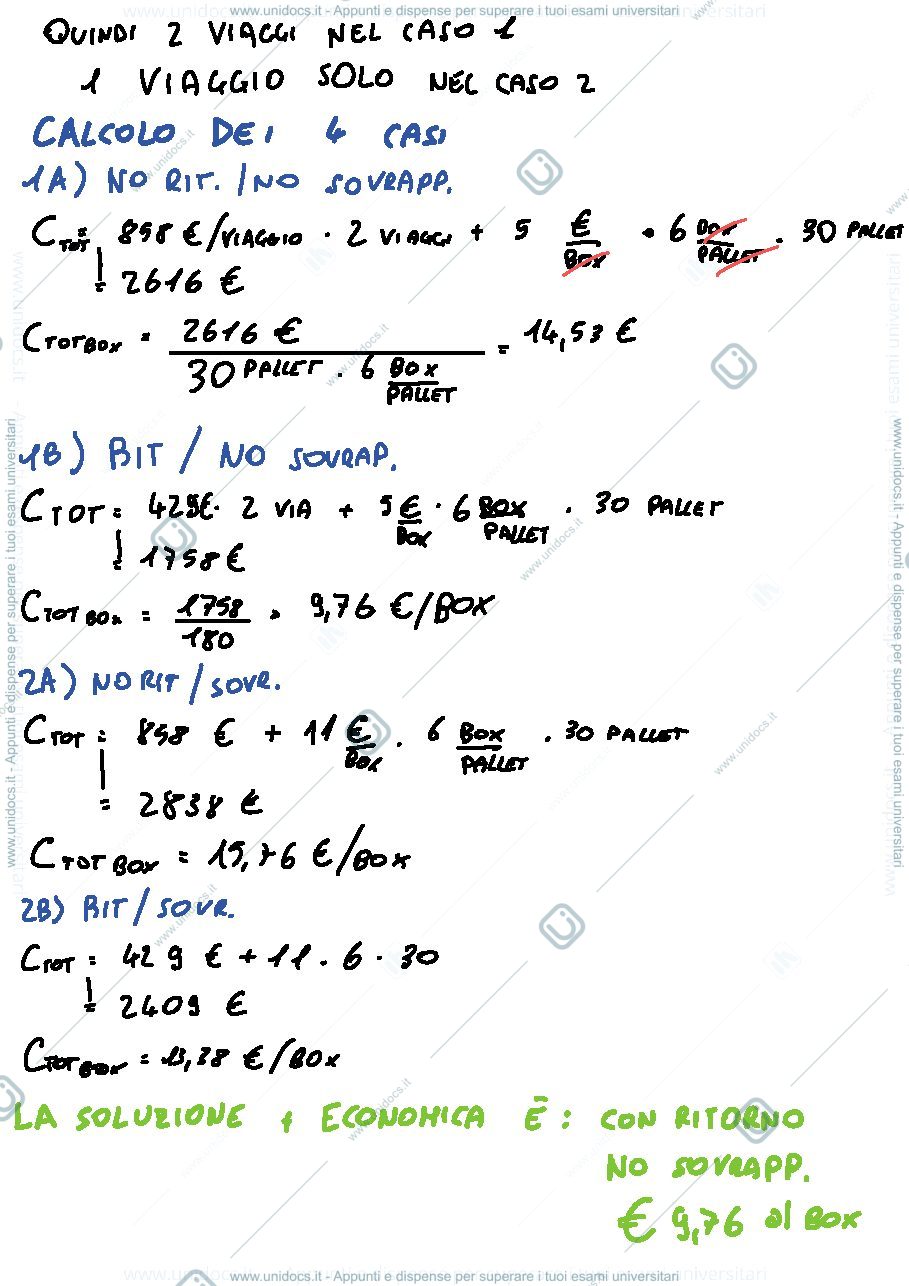 www.unidocs.it - Appunti e dispense per superare i tuoi esami universitari
QUINDI 2 VIAGGI NEL CASO 1
1 VIAGGIO SOLO NEL CASO 2
CALCOLO DEI 4 CASI
1A) NO RIT. / NO SOVRAPP.
C TOT = 858 €/VIAGGIO · 2 VIAGGI + 5 €/BOX · 6 BOX/PALLET · 30 PALLET
= 2616 €
C TOT BOX = 2616 € / 30 PALLET · 6 BOX/PALLET = 14,53 €
1B) RIT / NO SOVRAP.
C TOT = 429€ · 2 VIA + 5 €/BOX · 6 BOX/PALLET · 30 PALLET
= 1758 €
C TOT BOX = 1758/180 = 9,76 €/BOX
2A) NO RIT / SOVR.
C TOT = 858 € + 11 €/BOX · 6 BOX/PALLET · 30 PALLET
= 2838 €
C TOT BOX = 15,76 €/BOX
2B) RIT / SOVR.
C TOT = 429 € + 11 · 6 · 30
= 2409 €
C TOT BOX = 13,38 €/BOX
LA SOLUZIONE + ECONOMICA È : CON RITORNO
NO SOVRAPP.
€ 9,76 al BOX
www.unidocs.it - Appunti e dispense per superare i tuoi esami universitari